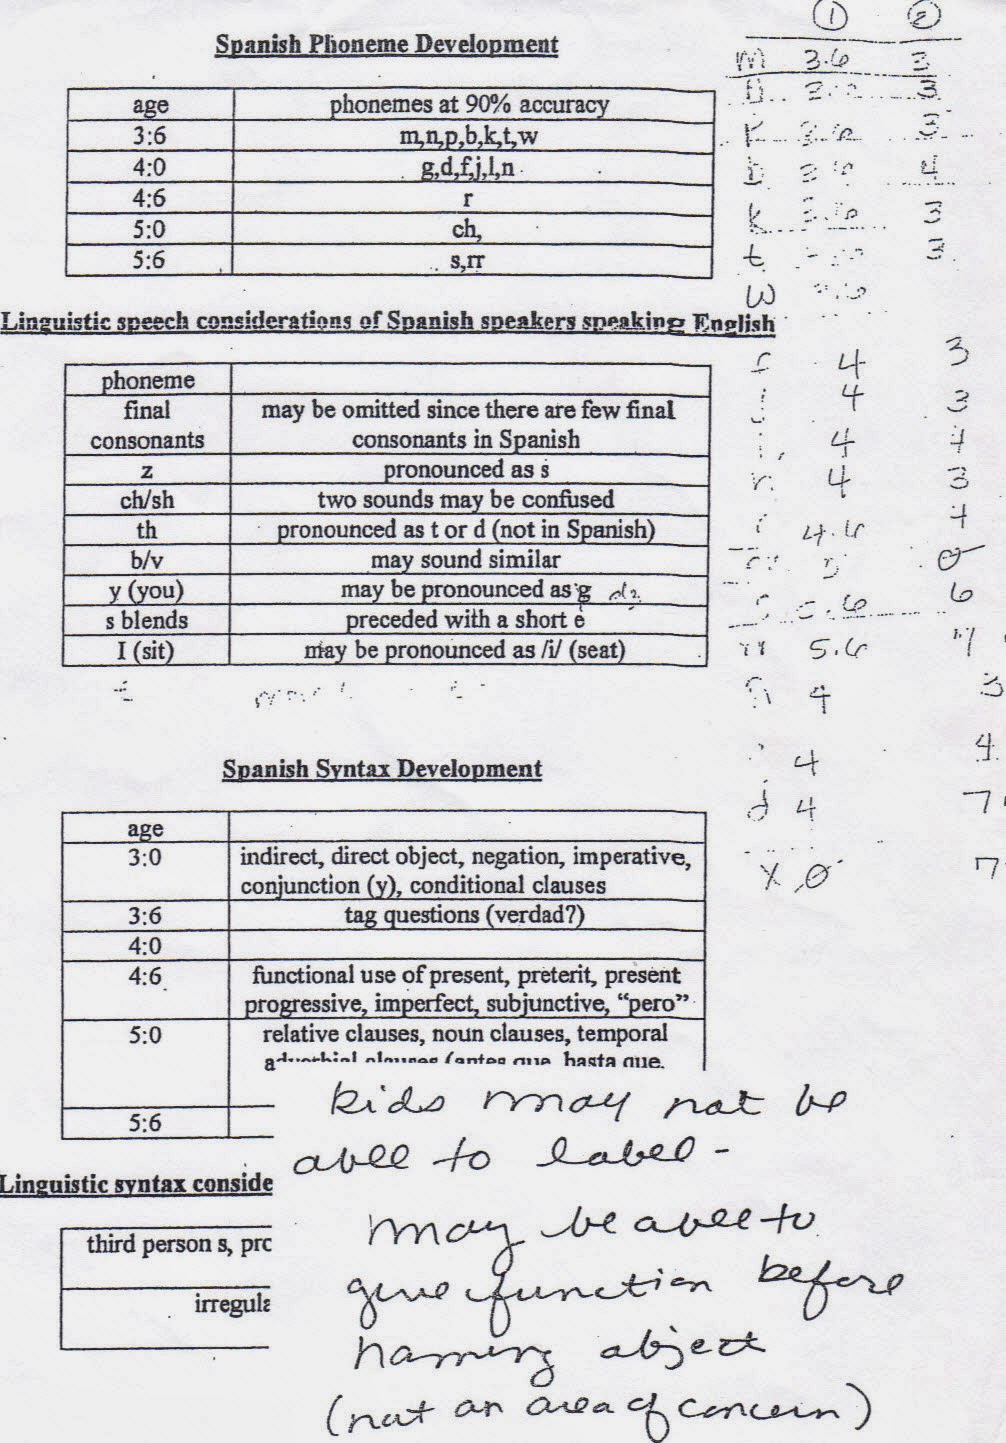 Spanish Phoneme Development
age phonemes at 90% accuracy
3:6 m,n,p,b,k,t,w
4:0 g,d,f,j,l,n
4:6 r
5:0 ch,
5:6 s,rr
Linguistic speech considerations of Spanish speakers speaking English
phoneme
final may be omitted since there are few final
consonants consonants in Spanish
z pronounced as s
ch/sh two sounds may be confused
th pronounced as t or d (not in Spanish)
b/v may sound similar
y (you) may be pronounced as g dz
s blends preceded with a short e
I (sit) may be pronounced as /i/ (seat)
Spanish Syntax Development
age
3:0 indirect, direct object, negation, imperative,
conjunction (y), conditional clauses
3:6 tag questions (verdad?)
4:0
4:6 functional use of present, preterit, present
progressive, imperfect, subjunctive, "pero"
5:0 relative clauses, noun clauses, temporal
adverbial clauses (antes que, hasta que,
5:6
Linguistic syntax conside
third person s, prc
irregula
① ②
m 3.6 3
3
k 3.6 3
b 4
k 3
t 3
w
4 3
j 4 3
4 4
n 4 3
4.6 4
0
6
rr 5.6 7
4 3
4 4
d 4 7
x 0 7
kids may not be
able to label -
may be able to
give function before
naming object
(not an area of concern)